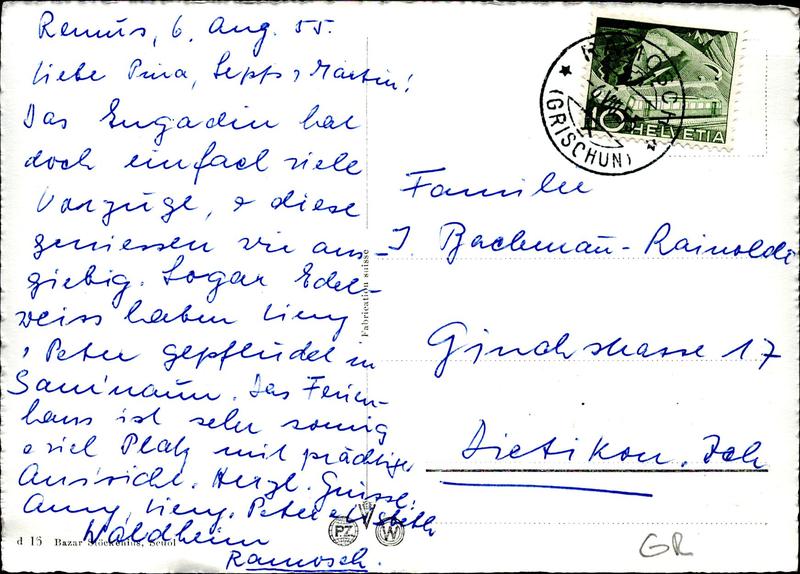 Remüs, 6. Aug. 55.
Liebe Pina, Sepp & Martin!
Das Engadin hat
doch einfach viele
Vorzüge, & diese
geniessen wir aus-
giebig. Sogar Edel-
weiss haben
& Peter gepflückt in
Samnaun. Das Ferien-
haus ist sehr sonnig
& viel Platz mit prächtiger
Aussicht. Herzl. Grüsse:
Peter &
Waldheim
Ramosch.
d 16 Bazar Stöckenius, Scuol
Fabrication suisse
RAMOSCH
(GRISCHUN)
10
HELVETIA
Familie
J. Bachmann-Rainoldi
17
Dietikon. Zch
PZ W
GR